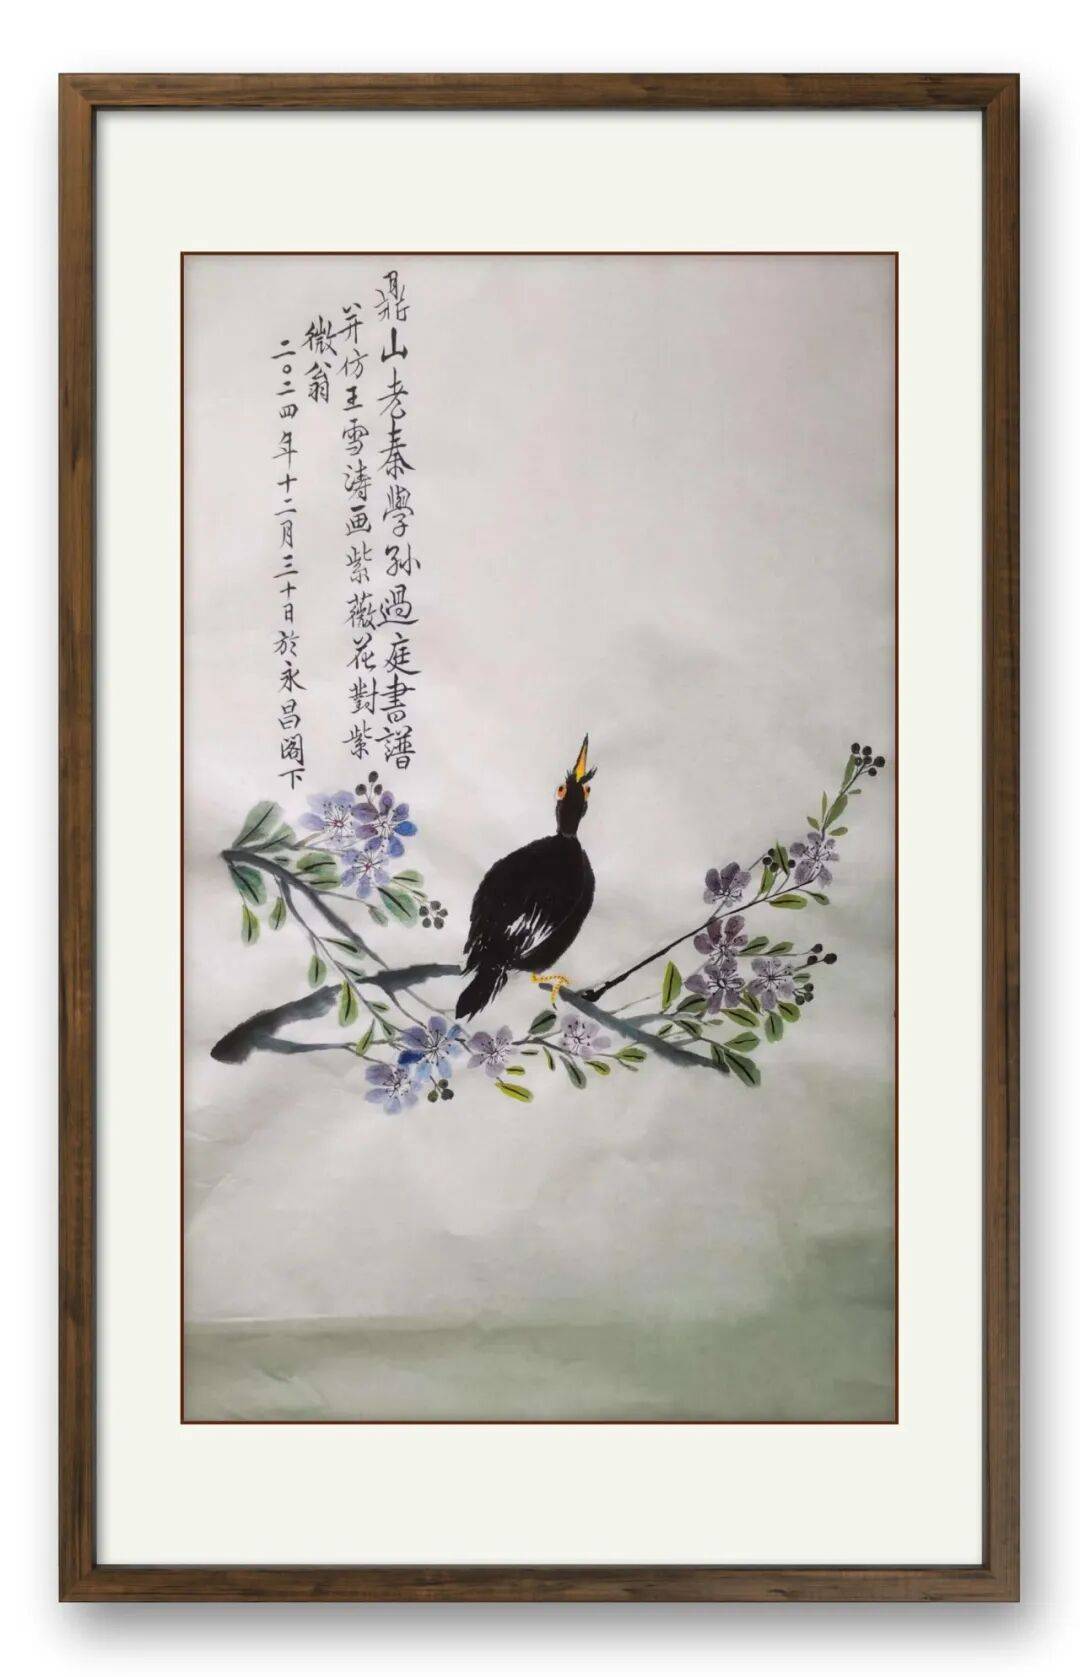 鼎山老秦學孫過庭書譜
并仿王雪涛画紫薇花對紫
微翁
二〇二四年十二月三十日於永昌阁下